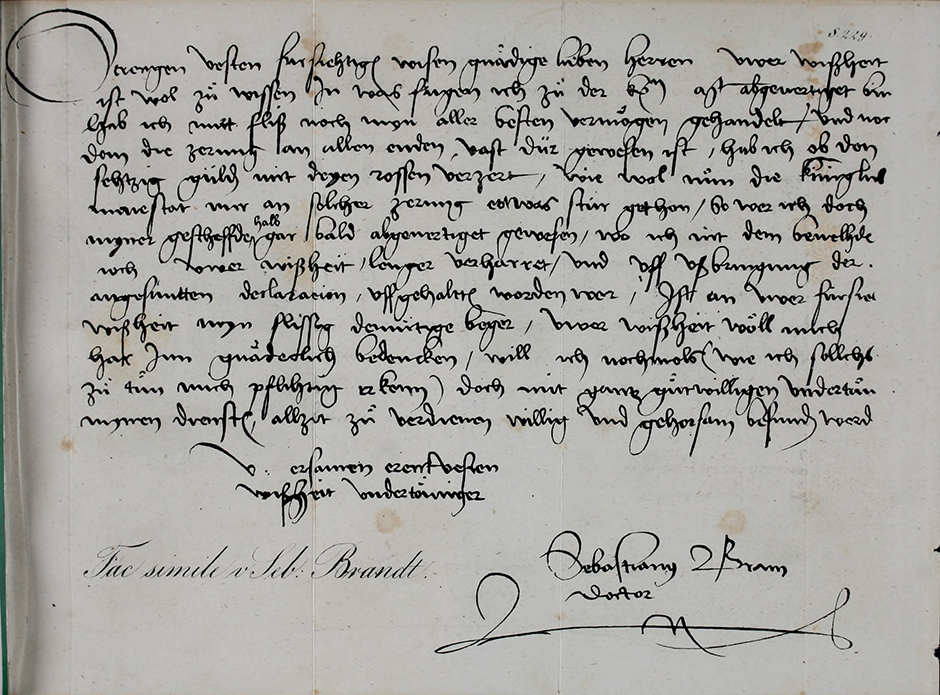 S 229.
Strengen vesten fürsichtigen wisen gnädige lieben herren uwer wißheit
ist wol zü wissen In was fügen ich zü der abgevertiget bin
hab ich mitt fliß noch myn aller besten vermögen gehandelt / und noc
dem die zerung an allen enden vast dür gewesen ist / hab ich ob den
sehtzig güld mit dryen rossen verzert / wie wol nün die küniglich
maiestat mir an solcher zerung ettwas stür gethon / so wer ich doch
myner gescheffden halb gar bald abgevertiget gewesen / wo ich nit dem bevelhde
noch uwer wißheit / lenger verharret / und uff ußbringung der
angesunnen declaracion / uffgehalten worden wer / Ist an uwer fürsic
wißheit myn flissig demütige beger / uwer wißheit wöll mich
har Inn gnädeclich bedencken / will ich nochmols ( wie ich sollichs
zü tün mich pflichtig erkenn ) doch mit gantz gütwilligen undertän
mynen dienst / allzit zü verdienen willig und gehorsam befunden werd
v. ersamen erentvesten
wißheit undertäniger
Sebastianus Brant
doctor
Fac simile v Seb: Brandt.